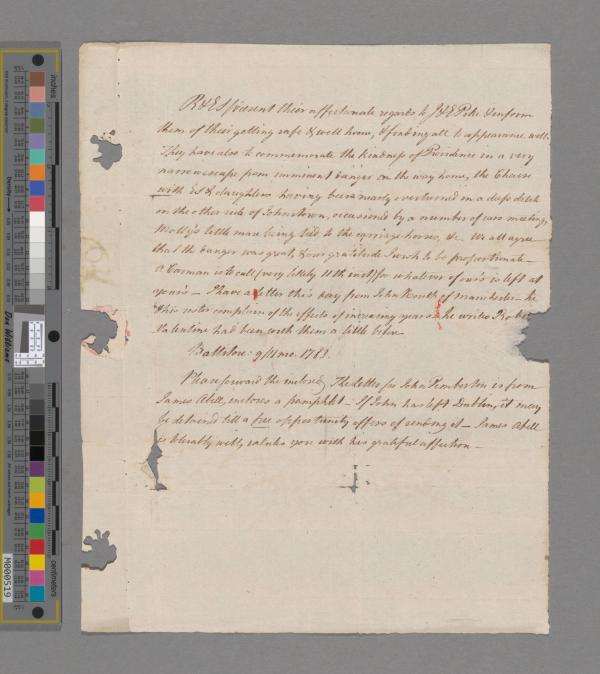 R & E S present their affectionate regards to J & E Pike & inform
them of their getting safe & well home, & finding all to appearance well.
They have also to commemorate the kindness of Providence in a very
narrow escape from imminent danger on the way home, the Chaise
with ES & daughters having been nearly overturned in a deep ditch
on the other side of Johnstown, occasioned by a number of cars meeting,
Molly's little mare being tied to the carriage horses, &c. We all agree
that the danger was great, & our gratitude I wish to be proportionate —
a Carman is to call (very likely 11th inst) for whatever of ours is left at
yours — I have a letter this day from John Routh of Manchester — he
& his sister complain of the effects of increasing years — he writes Robt
Valentine had been with them a little before —
Ballitore: 9/12mo. 1783.
Please forward the inclosed. The Letter for John Pemberton is from
James Abell, incloses a pamphlet — If John has left Dublin, it may
be detained till a free opportunity offers of sending it — James Abell
is tolerably well, salutes you with his grateful affection —
inches
centimeters
Density
Don Williams
M000519